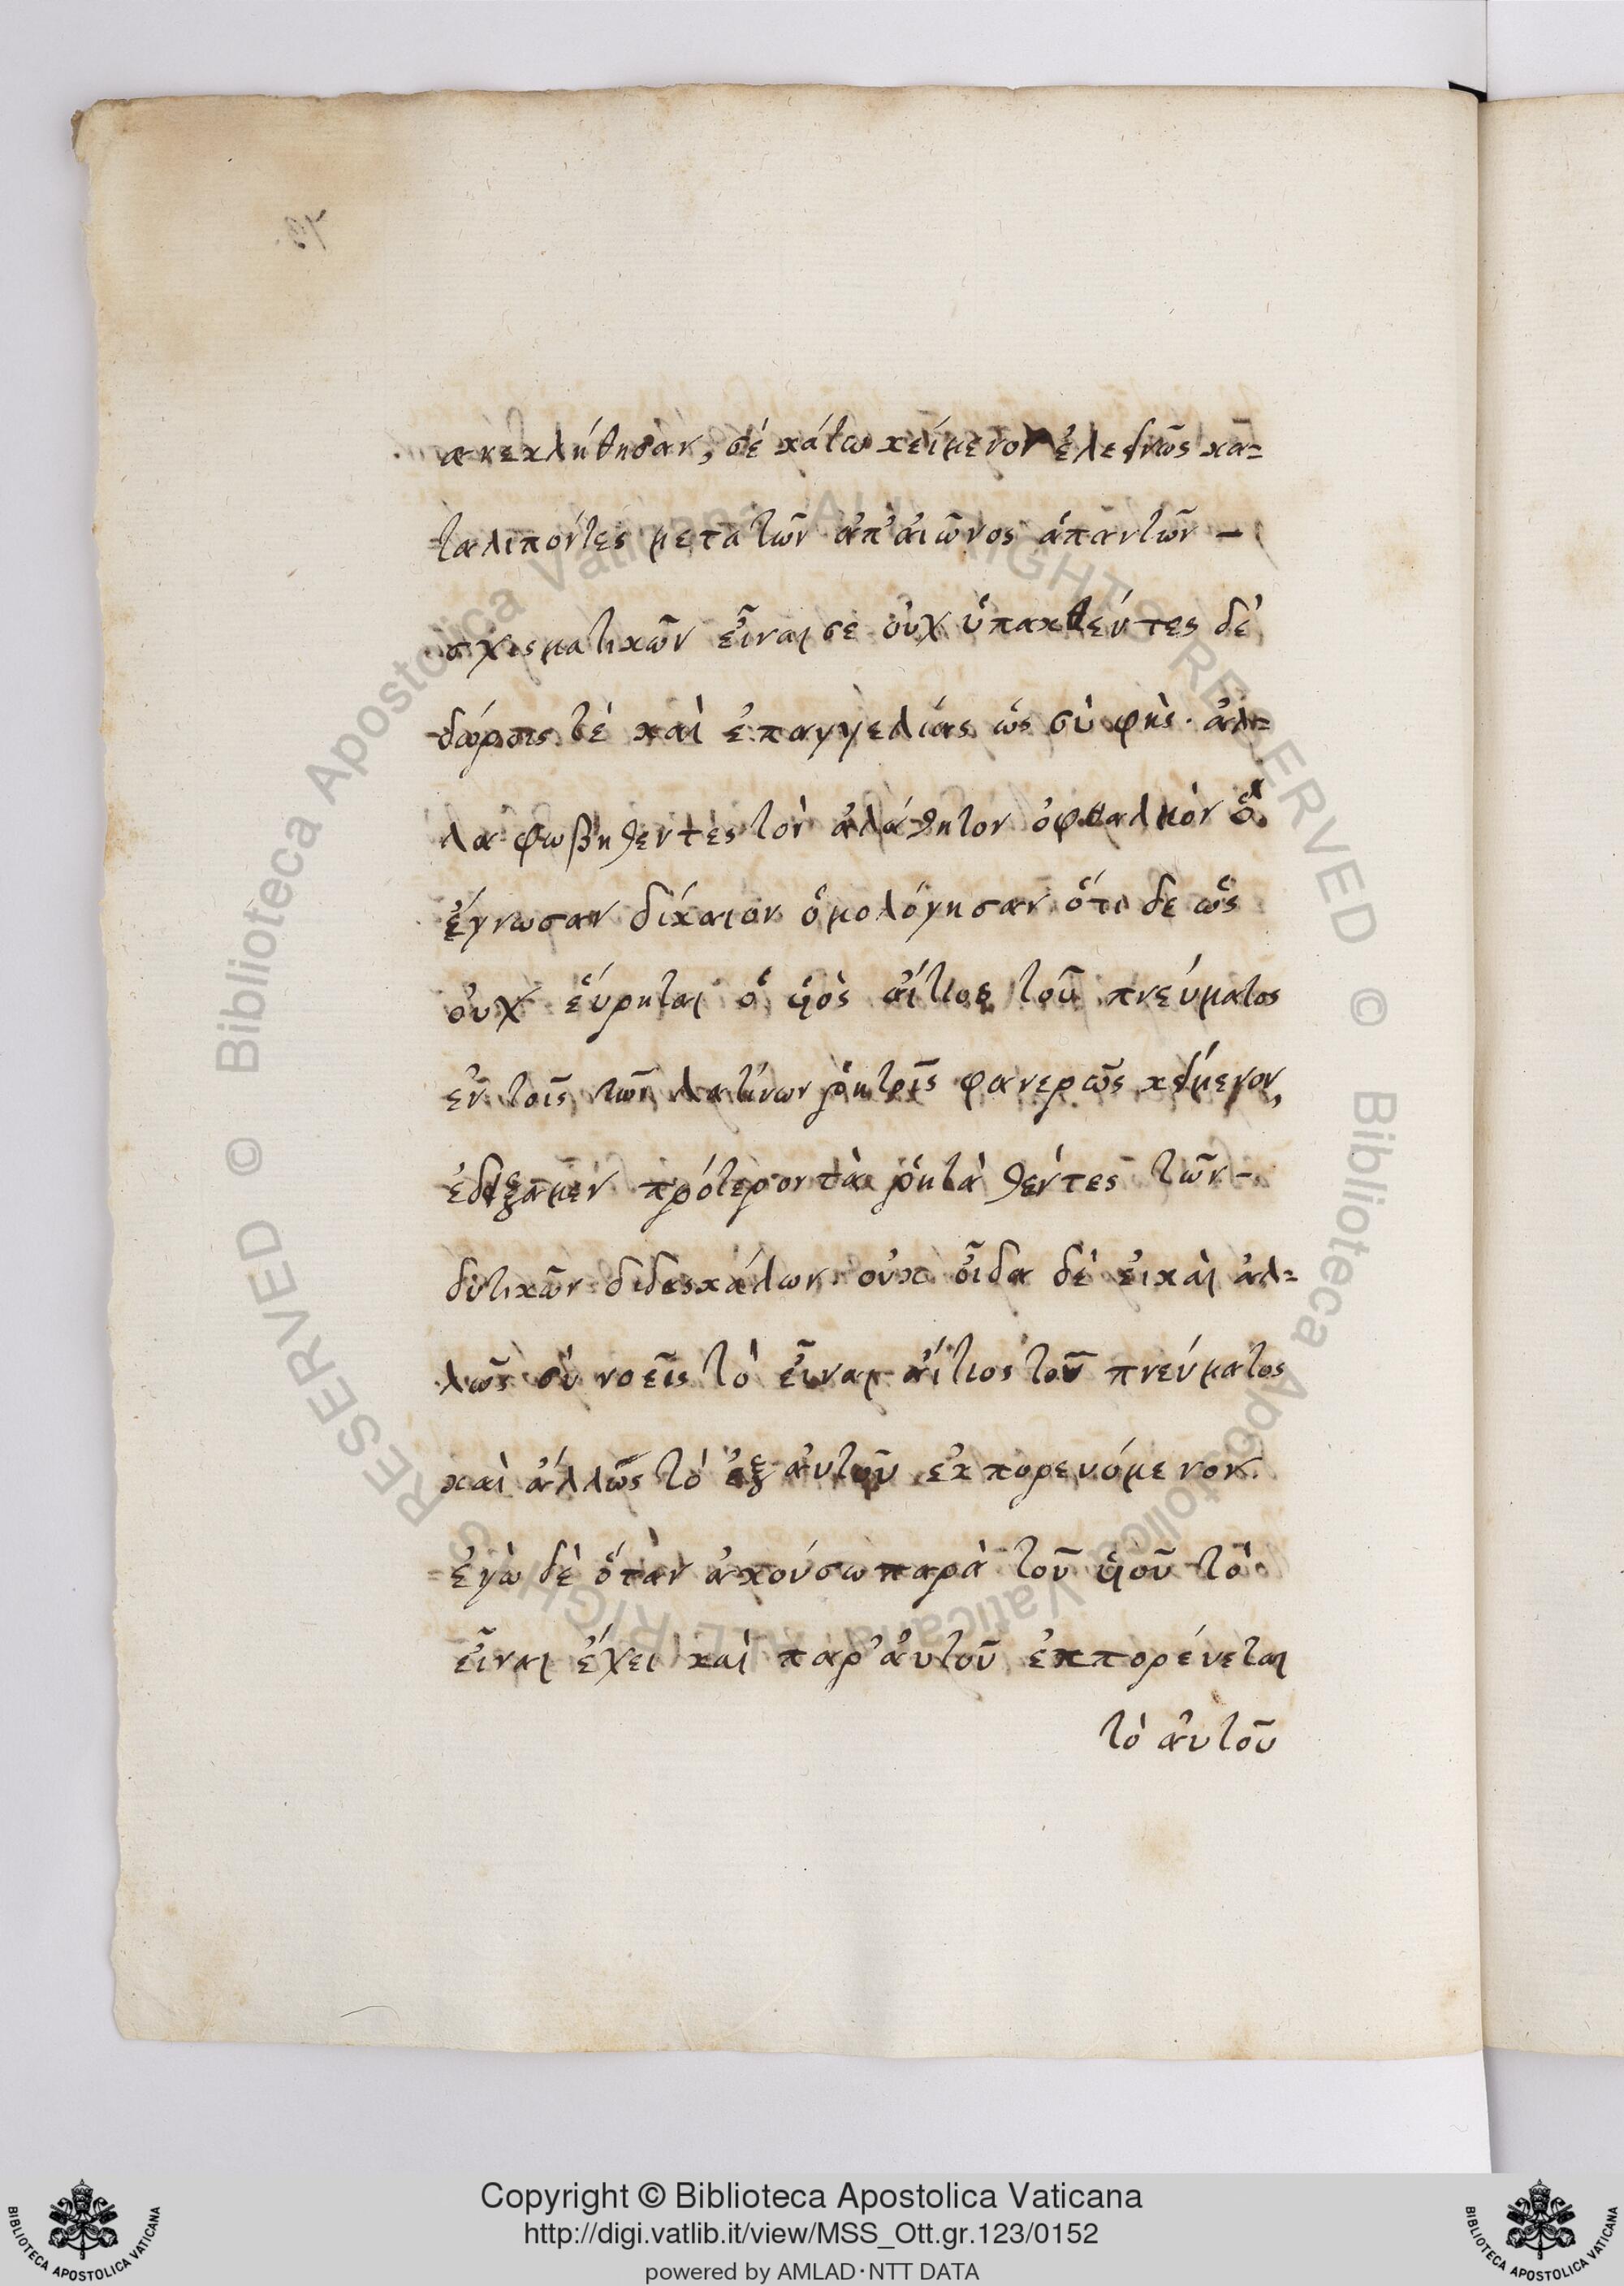 ανεκλήθησαν, σέ κάτω κείμενον ἐλεεινῶς κα=
ταλιπόντες μετα τῶν ἀπ' ἀιῶνος ἁπαντῶν -
σχισματικῶν εἶναι σε οὐχ ὑπαχθέντες δέ
δώροις τέ καὶ ἐπαγγελίας ὡς σὺ φής· ἀλ=
λα φωβηθεντες τὸν ἀλάθητον ὀφθαλμὸν ὅ
ἔγνωσαν δίκαιον ὁμολόγησαν ὅτι δε ὡς
οὐχ εὕρηται ὁ ὑιὸς ἀίτιος τοῦ πνεύματος
ἐν τοῖς τῶν λατίνων ῥητοῖς φανερῶς κείμενον,
ἐδείξαμεν πρότερον τὰ ῥητὰ θέντες τῶν -
δυτικῶν διδασκάλων οὐκ οἶδα δὲ ἐι καὶ ἀλ=
λῶς σὺ νοεῖς τὸ εἶναι ἀίτιος τοῦ πνεύματος
καὶ ἄλλῶς τὸ ἐξ ἀυτοῦ ἐκπορευόμενον
ἐγὼ δὲ ὅταν ἀκούσω παρὰ τοῦ ὑιοῦ τὸ
εἶναι ἔχει καὶ παρ' ἀυτοῦ ἐκπορέυεται
τὸ ἀυτοῦ
Copyright © Biblioteca Apostolica Vaticana
http://digi.vatlib.it/view/MSS_Ott.gr.123/0152
powered by AMLAD·NTT DATA